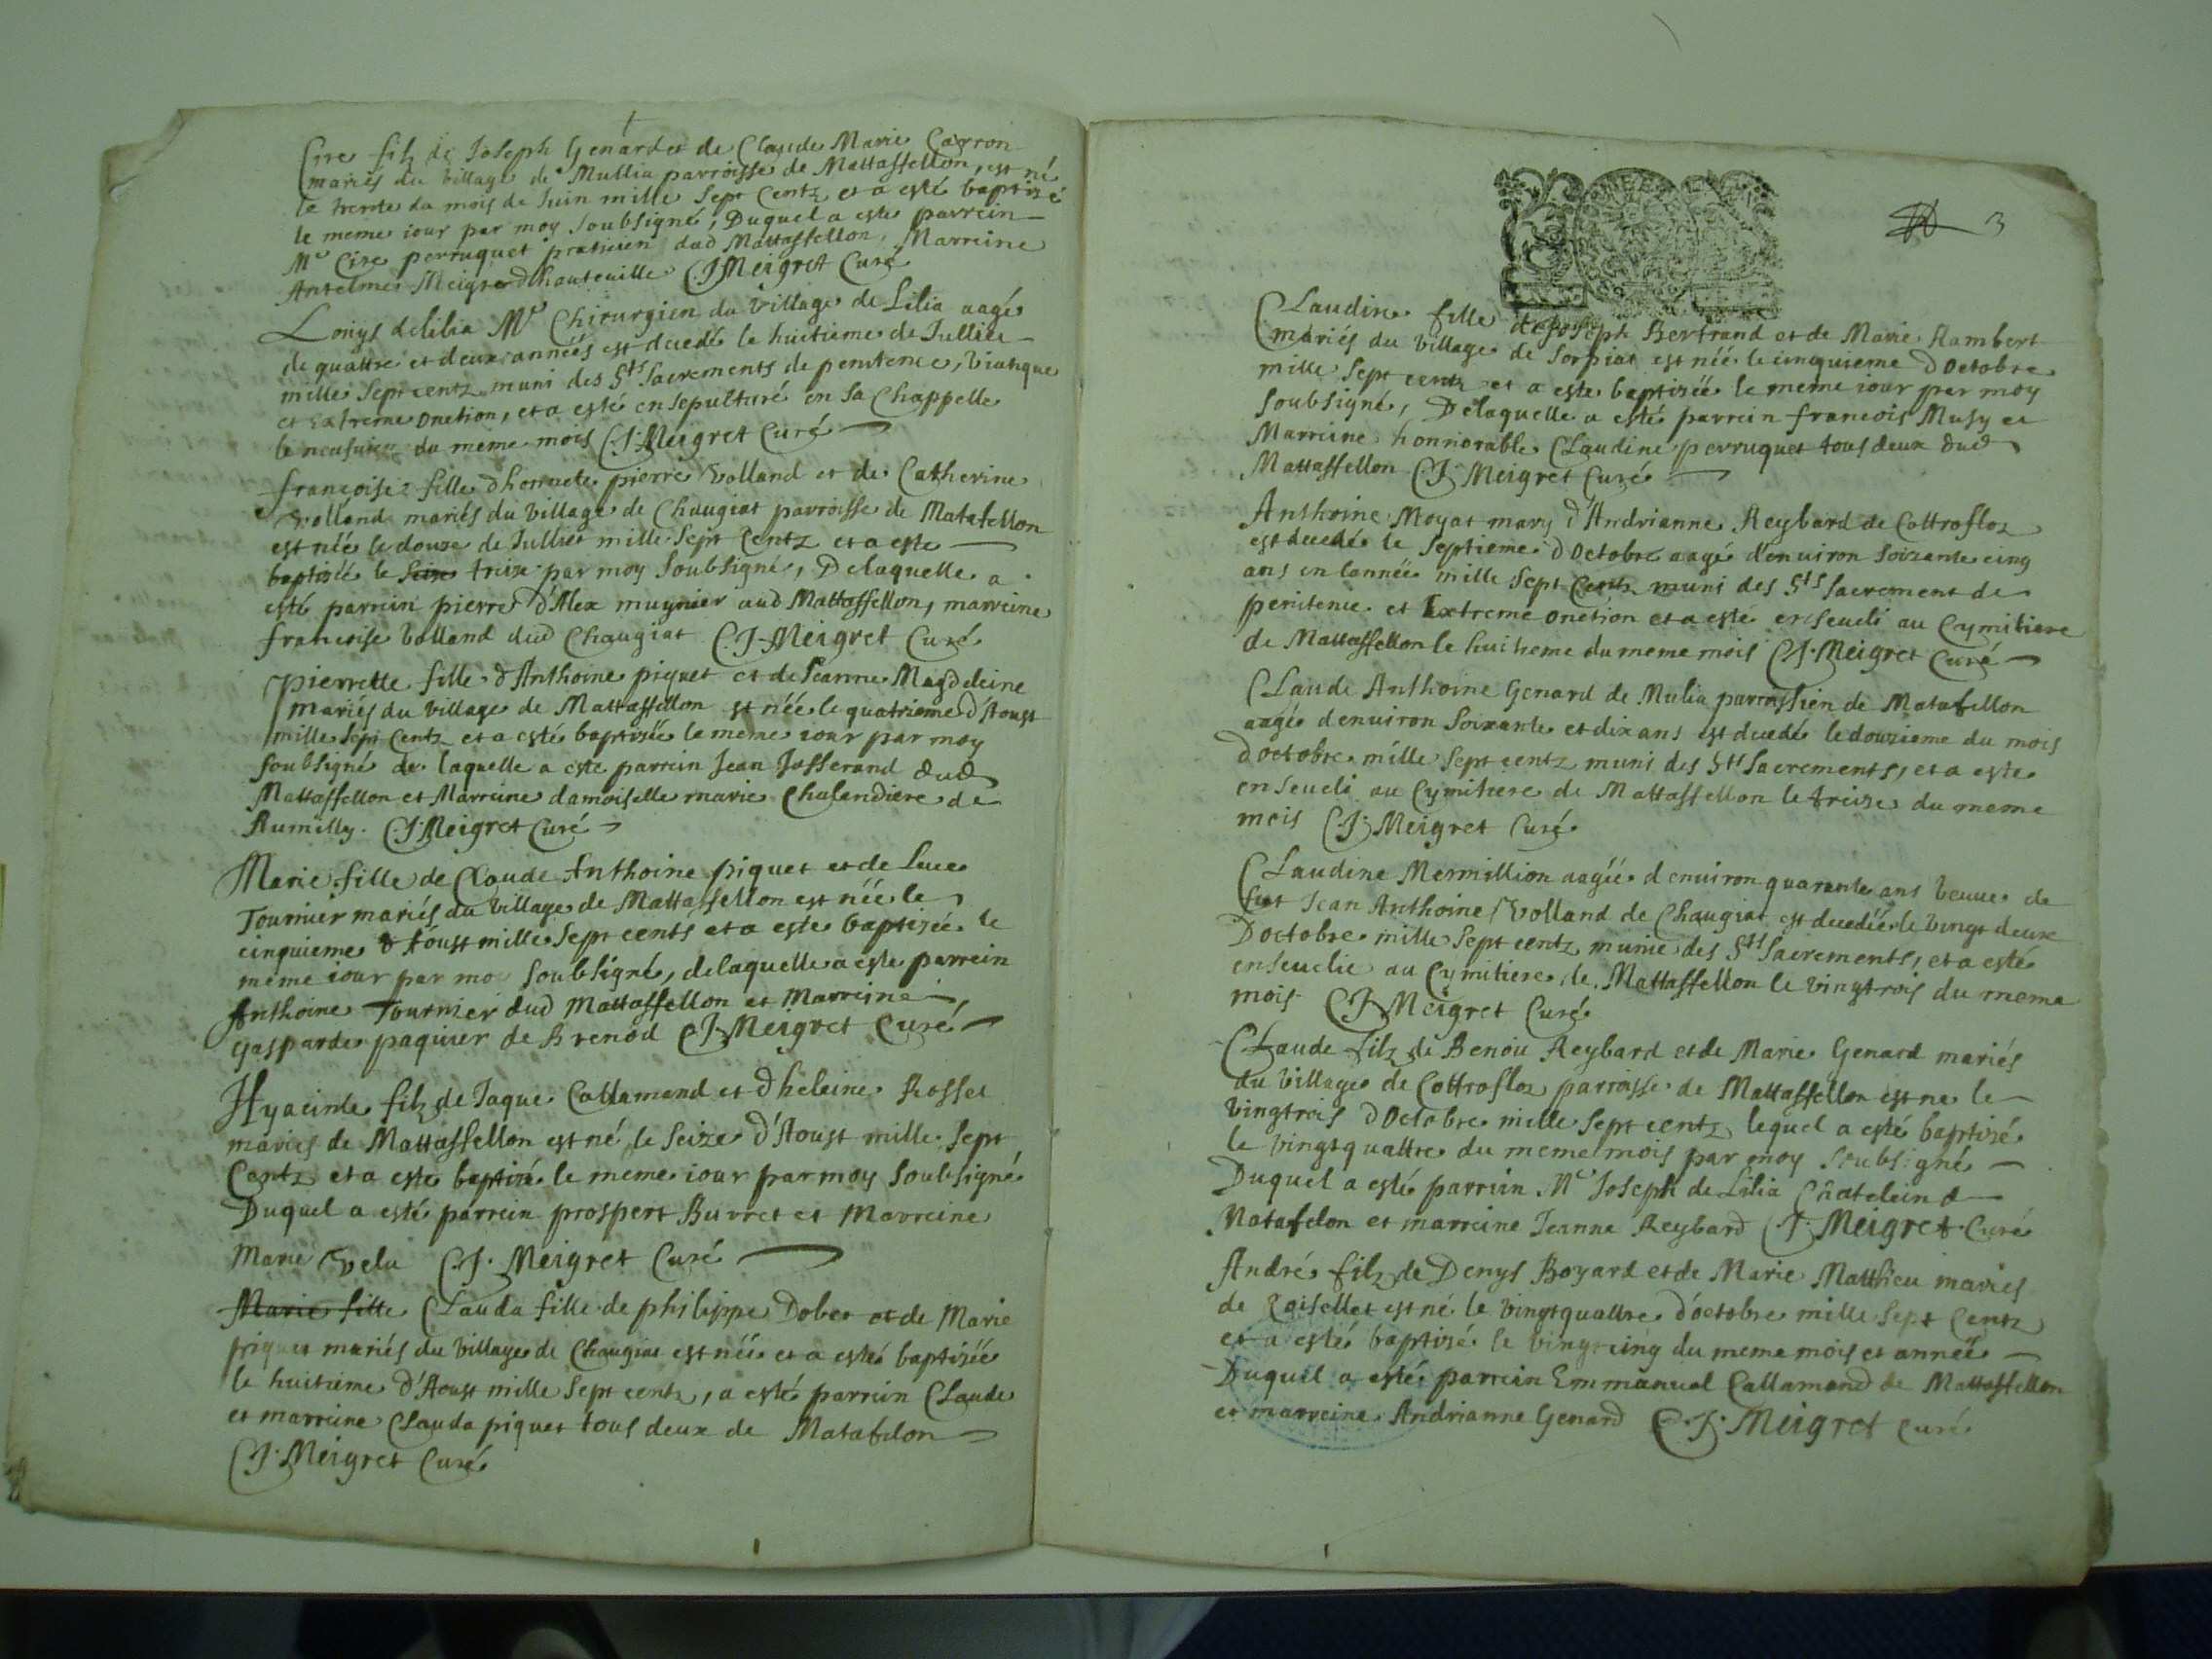 Cire filz de Joseph Genard et de Claude Marie Carron
mariés du village de Mullia parroisse de Mattaffellon, est né
le trente du mois de Juin mille Sept Centz et a esté baptizé
le meme iour par moy Soubsigné, Duquel a este parrein
Me Cire perruquet praticien dud Mattaffellon, Marreine
Antelme dhauteuille C.J.Meigret Curé
Louys delilia Me Chirurgien du village de Lilia aagé
de quattre et deux années est decedé le huitieme de Jullier
mille Septcentz muni des Sts Sacrements de penitence, Viatique
et Extreme onction, et a esté ensepulturé en sa Chappelle
le neufuieme du meme mois C.J.Meigret Curé
françoise fille dhonnete pierre Volland et de Catherine
Volland mariés du village de Chaugiat parroisse de Matafellon
est née le douze de Jullier mille Sept Centz et a este
baptizée le treize par moy Soubsigné, Delaquelle a
esté parrein pierre d'Alex mugnier aud Mattaffellon, marreine
francoise Volland dud Chaugiat C.J.Meigret Curé
Pierrette fille d'Anthoine piquet et de Jeanne Magdeleine
mariés du village de Mattaffellon est née le quatrieme d'Aoust
mille Sept Centz et a esté baptizée le meme iour par moy
Soubsigné de laquelle a este parrein Jean Josserand dud
Mattaffellon et Marreine damoiselle marie Chalandiere de
Rumilly. C.J.Meigret Curé
Marie fille de Claude Anthoine piquet et de Luce
Tournier mariés du village de Mattaffellon est née le
cinquieme d'Aoust mille Sept cents et a este baptizée le
meme iour par moy Soubsigné, delaquelle a este parrein
Anthoine Tournier dud Mattaffellon et Marreine
Gasparde paquier de Brenod C.J.Meigret Curé
Hyacinte filz de Jaque Callamand et dheleine Rosset
mariés de Mattaffellon est né le Seize d'Aoust mille Sept
Centz et a este baptizé le meme iour par moy Soubsigné
Duquel a esté parrein prospert Burret et Marreine
Marie Vela C.J. Meigret Curé
Marie fille Clauda fille de philippe Dobet et de Marie
piquet mariés du village de Chaugiat est née et a esté baptizée
le huitieme d'Aoust mille Sept centz, a esté parrein Claude
et marreine Clauda piquet tous deux de Matafelon
C.J.Meigret Curé
3
Claudine fille de Joseph Bertrand et de Marie Rambert
mariés du village de Sorpiat est née le cinquieme d Octobre
mille Sept centz et a este baptizée le meme iour par moy
Soubsigné, Delaquelle a esté parrein francois Musy et
Marreine honnorable Claudine perruquet tous deux dud
Mattaffellon C.J. Meigret Curé
Anthoine Moyat mary d'Andrianne Reybard de Cottrofloz
est decedé le Septieme d Octobre aagé denuiron Soixante cinq
ans en lannée mille Sept Centz muni des Sts Sacrement de
penitence et Extreme onction et a esté enseueli au Cymitiere
de Mattaffellon le huitieme du meme mois C.J.Meigret Curé
Claude Anthoine Genard de Mulia parroissien de Matafellon
aagé denuiron Soixante et dix ans est decedé le douzieme du mois
d'octobre mille Sept centz muni des Sts Sacrements, et a este
enseueli au Cymitiere de Mattaffellon le treize du meme
mois C.J.Meigret Curé
Claudine Mermillion aagée denuiron quarante ans veuue de
fut Jean Anthoine Volland de Chaugiat est decedée le vingt deux
D'octobre mille Sept centz munie des Sts Sacrements, et a este
enseuelie au Cymitiere de Mattaffellon le vingtrois du meme
mois C.J.Meigret Curé
Claude filz de Benoit Reybard et de Marie Genard mariés
du village de Cottrofloz parroisse de Mattaffellon est ne le
vingtrois d Octobre mille Sept centz lequel a esté baptizé
le vingtquattre du meme mois par moy Soubsigné
Duquel a esté parrein Me Joseph de Lilia Chatelein d
Matafelon et marreine Jeanne Reybard C.J. Meigret Curé
André filz de Denys Boyard et de Marie Matthieu mariés
de Coiselet est né le vingtquattre d'octobre mille Sept Centz
et a esté baptizé le vingtcinq du meme mois et année
Duquel a esté parrein Emmanuel Callamand de Mattaffellon
et marreine Andrianne Genard C.J. Meigret Curé